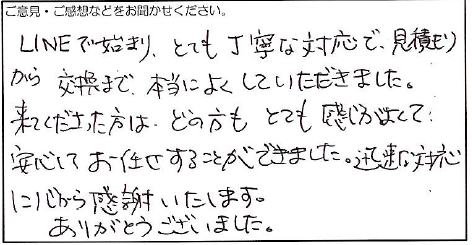 ご意見・ご感想などをお聞かせください。
LINEで始まり、とても丁寧な対応で、見積もり
から 交換まで、本当によくしていただきました。
来てくださった方は、どの方も とても 感じがよくて、
安心して お任せすることができました。迅速な対応
に心から感謝いたします。
ありがとうございました。